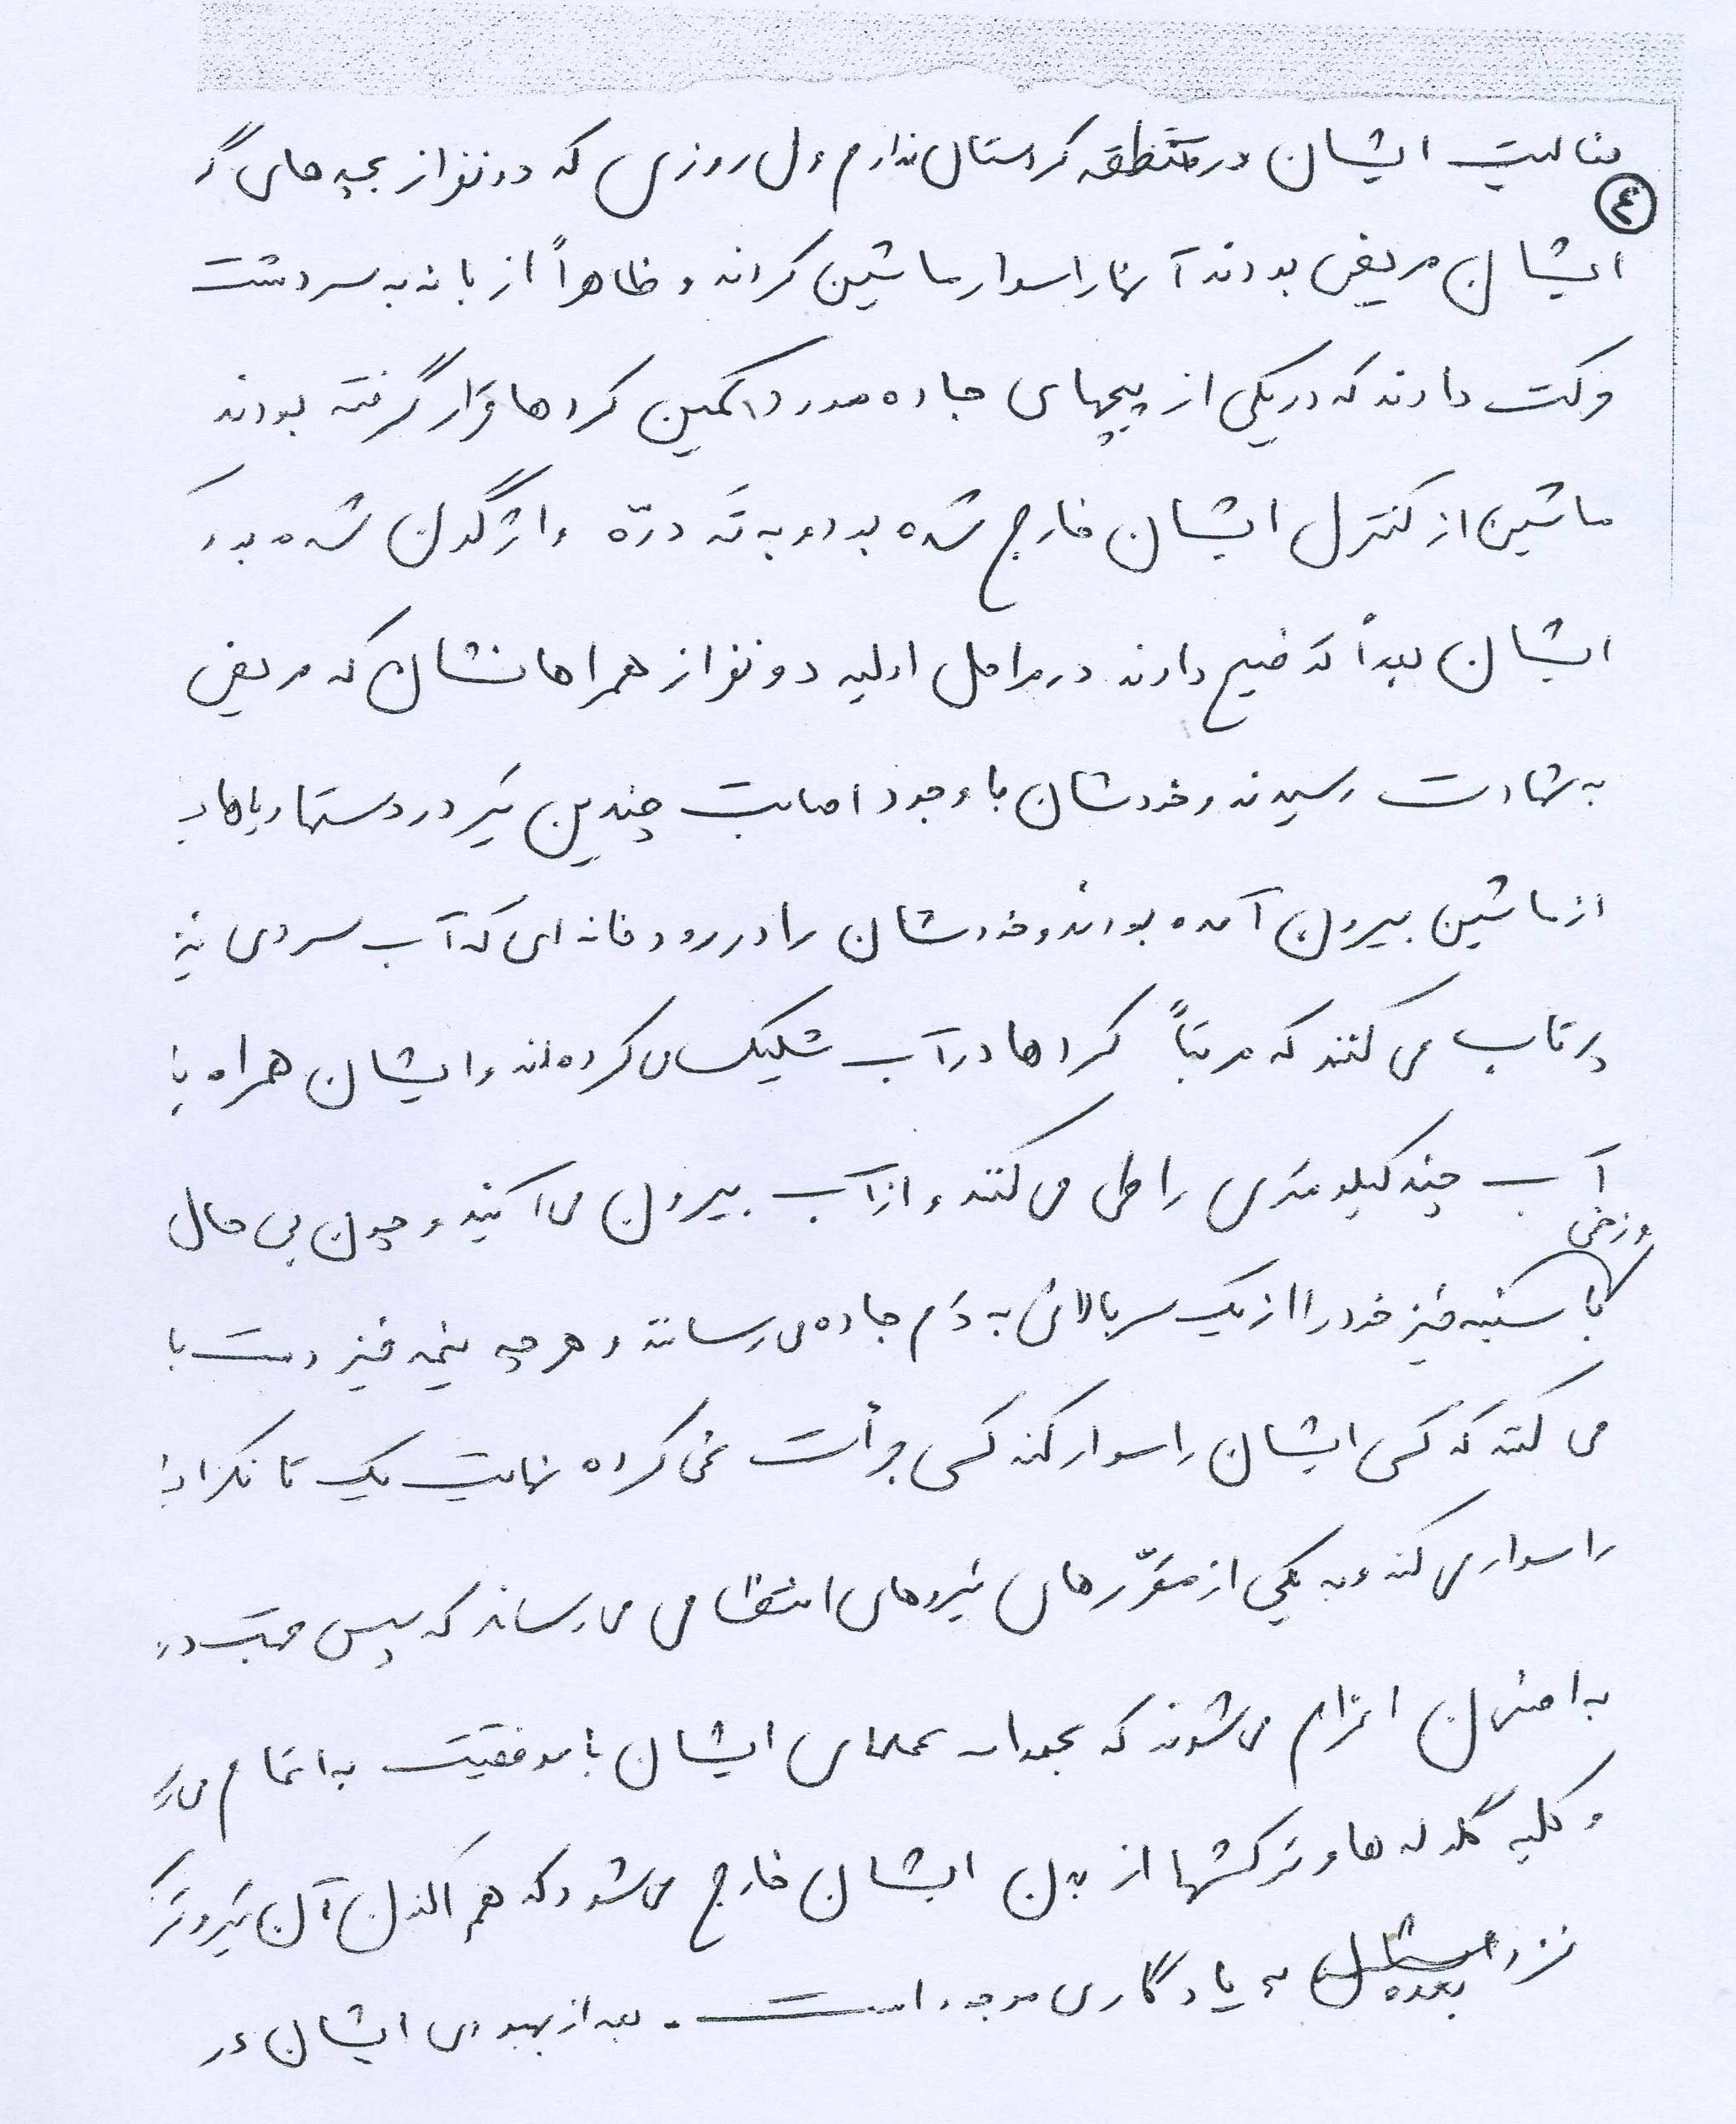 فعالیت ایشان در منطقه کردستان ندارم ولی روزی که دو نفر از بچه های گر
٤
ایشان مریض بودند آنها را سوار ماشین کردند و ظاهراً از بانه به سردشت
حرکت دادند که در یکی از پیچهای جاده مورد کمین کردها قرار گرفته بودند
ماشین از کنترل ایشان خارج شده بود و به ته درّه واژگون شده بود
ایشان بعداً توضیح دادند در مراحل اولیه دو نفر از همراهانشان که مریض
به شهادت رسیدند و خودشان با وجود اصابت چندین تیر در دستها و پاها
از ماشین بیرون آمده بودند و خودشان را در رودخانه ای که آب سردی نیز
پرتاب می کنند که مرتباً کردها در آب شلیک می کرده اند و ایشان همراه با
آب چند کیلومتری را طی می کنند و از آب بیرون می آیند و چون بی حال
و زخمی
با سینه خیز خود را از یک سربالائی به دَم جاده می رسانند و هر چه نیمه خیز دست با
می کنند که کسی ایشان را سوار کند کسی جرأت نمی کرده نهایت یک تانکر
را سوار می کند و به یکی از مقرّرهای نیروهای انتظامی می رساند که سپس جهت
به اصفهان اعزام می شوند که بحمداله عملهای ایشان با موفقیت به اتمام می
و کلیه گلوله ها و ترکشها از بدن ایشان خارج می شود که هم اکنون آن تیر و تر
نزد بنده به یادگاری موجود است . بعد از بهبودی ایشان در